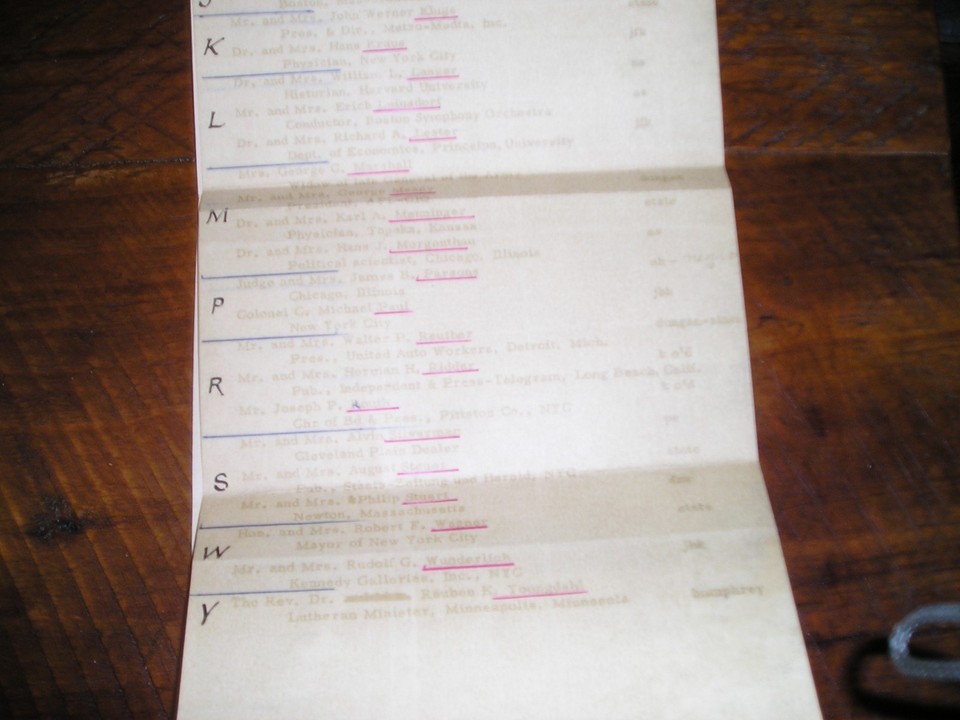 J
Boston,
Mr. and Mrs. John Werner Kluge
Pres. & Dir., Metro-Media, Inc.
state
K
Dr. and Mrs. Hans Kraus
Physician, New York City
jfk
Dr. and Mrs. William L. Langer
Historian, Harvard University
L
Mr. and Mrs. Erich Leinsdorf
Conductor, Boston Symphony Orchestra
Dr. and Mrs. Richard A. Lester
Dept. of Economics, Princeton University
jfk
Mrs. George C. Marshall
Widow of of the Army
Mr. and Mrs. George Meany
President, AFL-CIO
dungan
M
Dr. and Mrs. Karl A. Menninger
Physician, Topeka, Kansas
state
Dr. and Mrs. Hans J. Morgenthau
Political scientist, Chicago, Illinois
Judge and Mrs. James B. Parsons
Chicago, Illinois
P
Colonel C. Michael Paul
New York City
jbk
Mr. and Mrs. Walter P. Reuther
Pres., United Auto Workers, Detroit, Mich.
R
Mr. and Mrs. Herman H. Ridder
Pub., Independent & Press-Telegram, Long Beach, Calif.
k o'd
Mr. Joseph P. Routh
Chr of Bd & Pres., Pittston Co., NYC
k o'd
Mr. and Mrs. Alvin Silverman
Cleveland Plain Dealer
S
Mr. and Mrs. August Steuer
Pub., Staats Zeitung and Herold, NYC
state
Mr. and Mrs. Philip Stuart
Newton, Massachusetts
Hon. and Mrs. Robert F. Wagner
Mayor of New York City
state
W
Mr. and Mrs. Rudolf G. Wunderlich
Kennedy Galleries, Inc., NYC
jbk
Y
The Rev. Dr. Reuben K. Youngdahl
Lutheran Minister, Minneapolis, Minnesota
humphrey